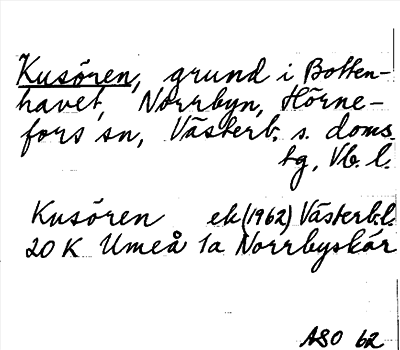 Kusören, grund i Botten-
havet, Norrbyn, Hörne-
fors sn, Västerb. s. doms.
tg, Vb. l.
Kusören ek (1962) Västerb.l.
20 K Umeå 1a Norrbyskär
ASO 62